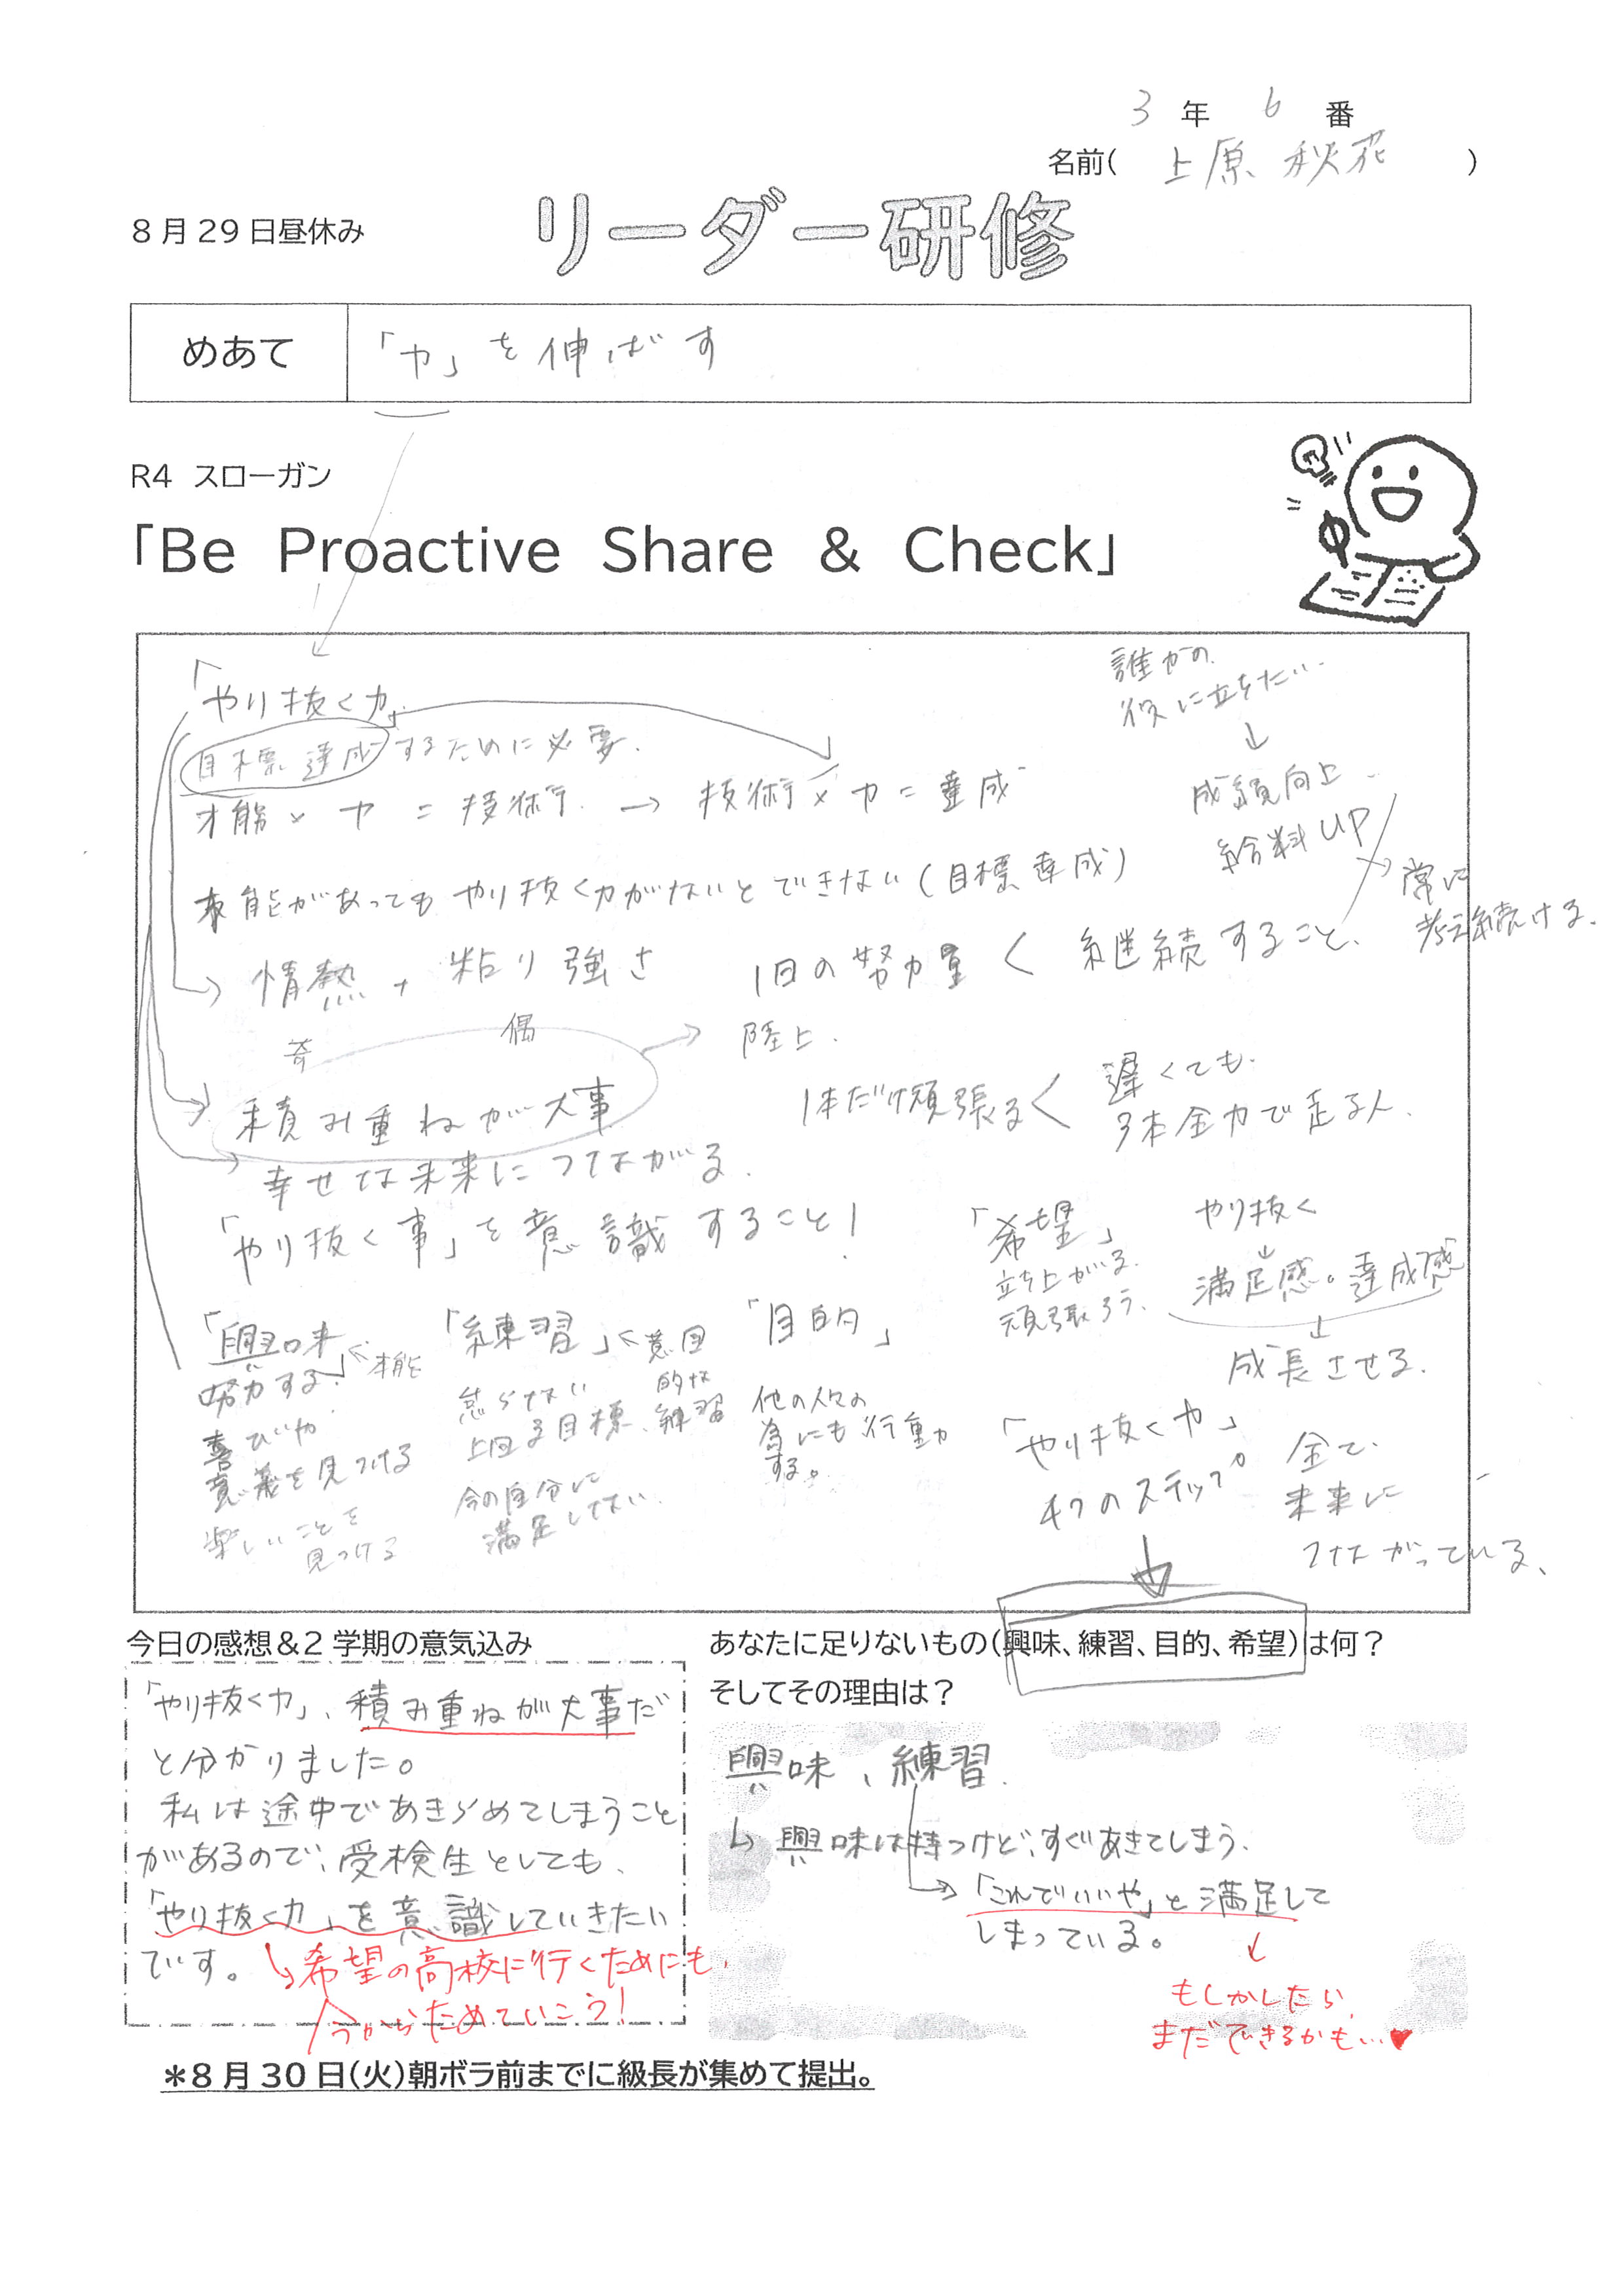 3 年 6 番
名前( 上原 秋花 )
8月29日昼休み
リーダー研修
めあて
「力」を伸ばす
R4 スローガン
「Be Proactive Share & Check」
「やり抜く力」
目標達成するために必要.
才能×力=技術. → 技術×力=達成
才能があってもやり抜く力がないとできない(目標達成)
→ 情熱 + 粘り強さ
誰かの.
役に立ちたい..
↓
成績向上
給料UP
→ 常に
考え続ける.
1日の努力量 < 継続すること、
奇 偶
積み重ねが大事
→ 陸上.
1本だけ頑張る < 遅くても.
3本全力で走る人.
→ 幸せな未来につながる.
「やり抜く事」を意識すること!
「興味」←本能
努力する.
喜びや
意義を見つける
楽しいことを
見つける
「練習」←意図
的な
練習
怠らない
上回る目標、
今の自分に
満足してない.
「目的」
他の人の
為にも行動
する。
「希望」
立ち上がる.
頑張ろう.
やり抜く
↓
満足感。達成感
↓
成長させる.
「やり抜く力」
4つのステップ
全て.
未来に
つながっている、
今日の感想&2学期の意気込み
「やり抜く力」、積み重ねが大事だ
と分かりました。
私は途中であきらめてしまうこと
があるので、受検生としても、
「やり抜く力」を意識していきたい
です。
↳希望の高校に行くためにも、
今からためていこう!
あなたに足りないもの(興味、練習、目的、希望)は何?
そしてその理由は?
興味、練習.
↳ 興味は持つけど、すぐあきてしまう.
→「これでいいや」と満足して
しまっている。
↓
もしかしたら
まだできるかも...♥
*8月30日(火)朝ボラ前までに級長が集めて提出。